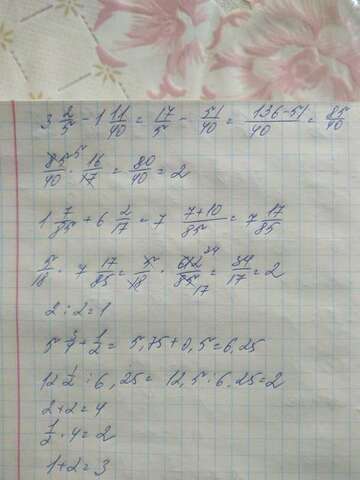 3 2/5 - 1 11/40 = 17/5 - 51/40 = 136-51/40 = 85/40
85/40 · 16/17 = 80/40 = 2
1 7/85 + 6 2/17 = 7 7+10/85 = 7 17/85
5/18 · 7 17/85 = 5/18 · 612/85 = 34/17 = 2
2 : 2 = 1
5 3/4 + 1/2 = 5,75 + 0,5 = 6,25
12 1/2 : 6,25 = 12,5 : 6,25 = 2
2 + 2 = 4
1/2 · 4 = 2
1 + 2 = 3